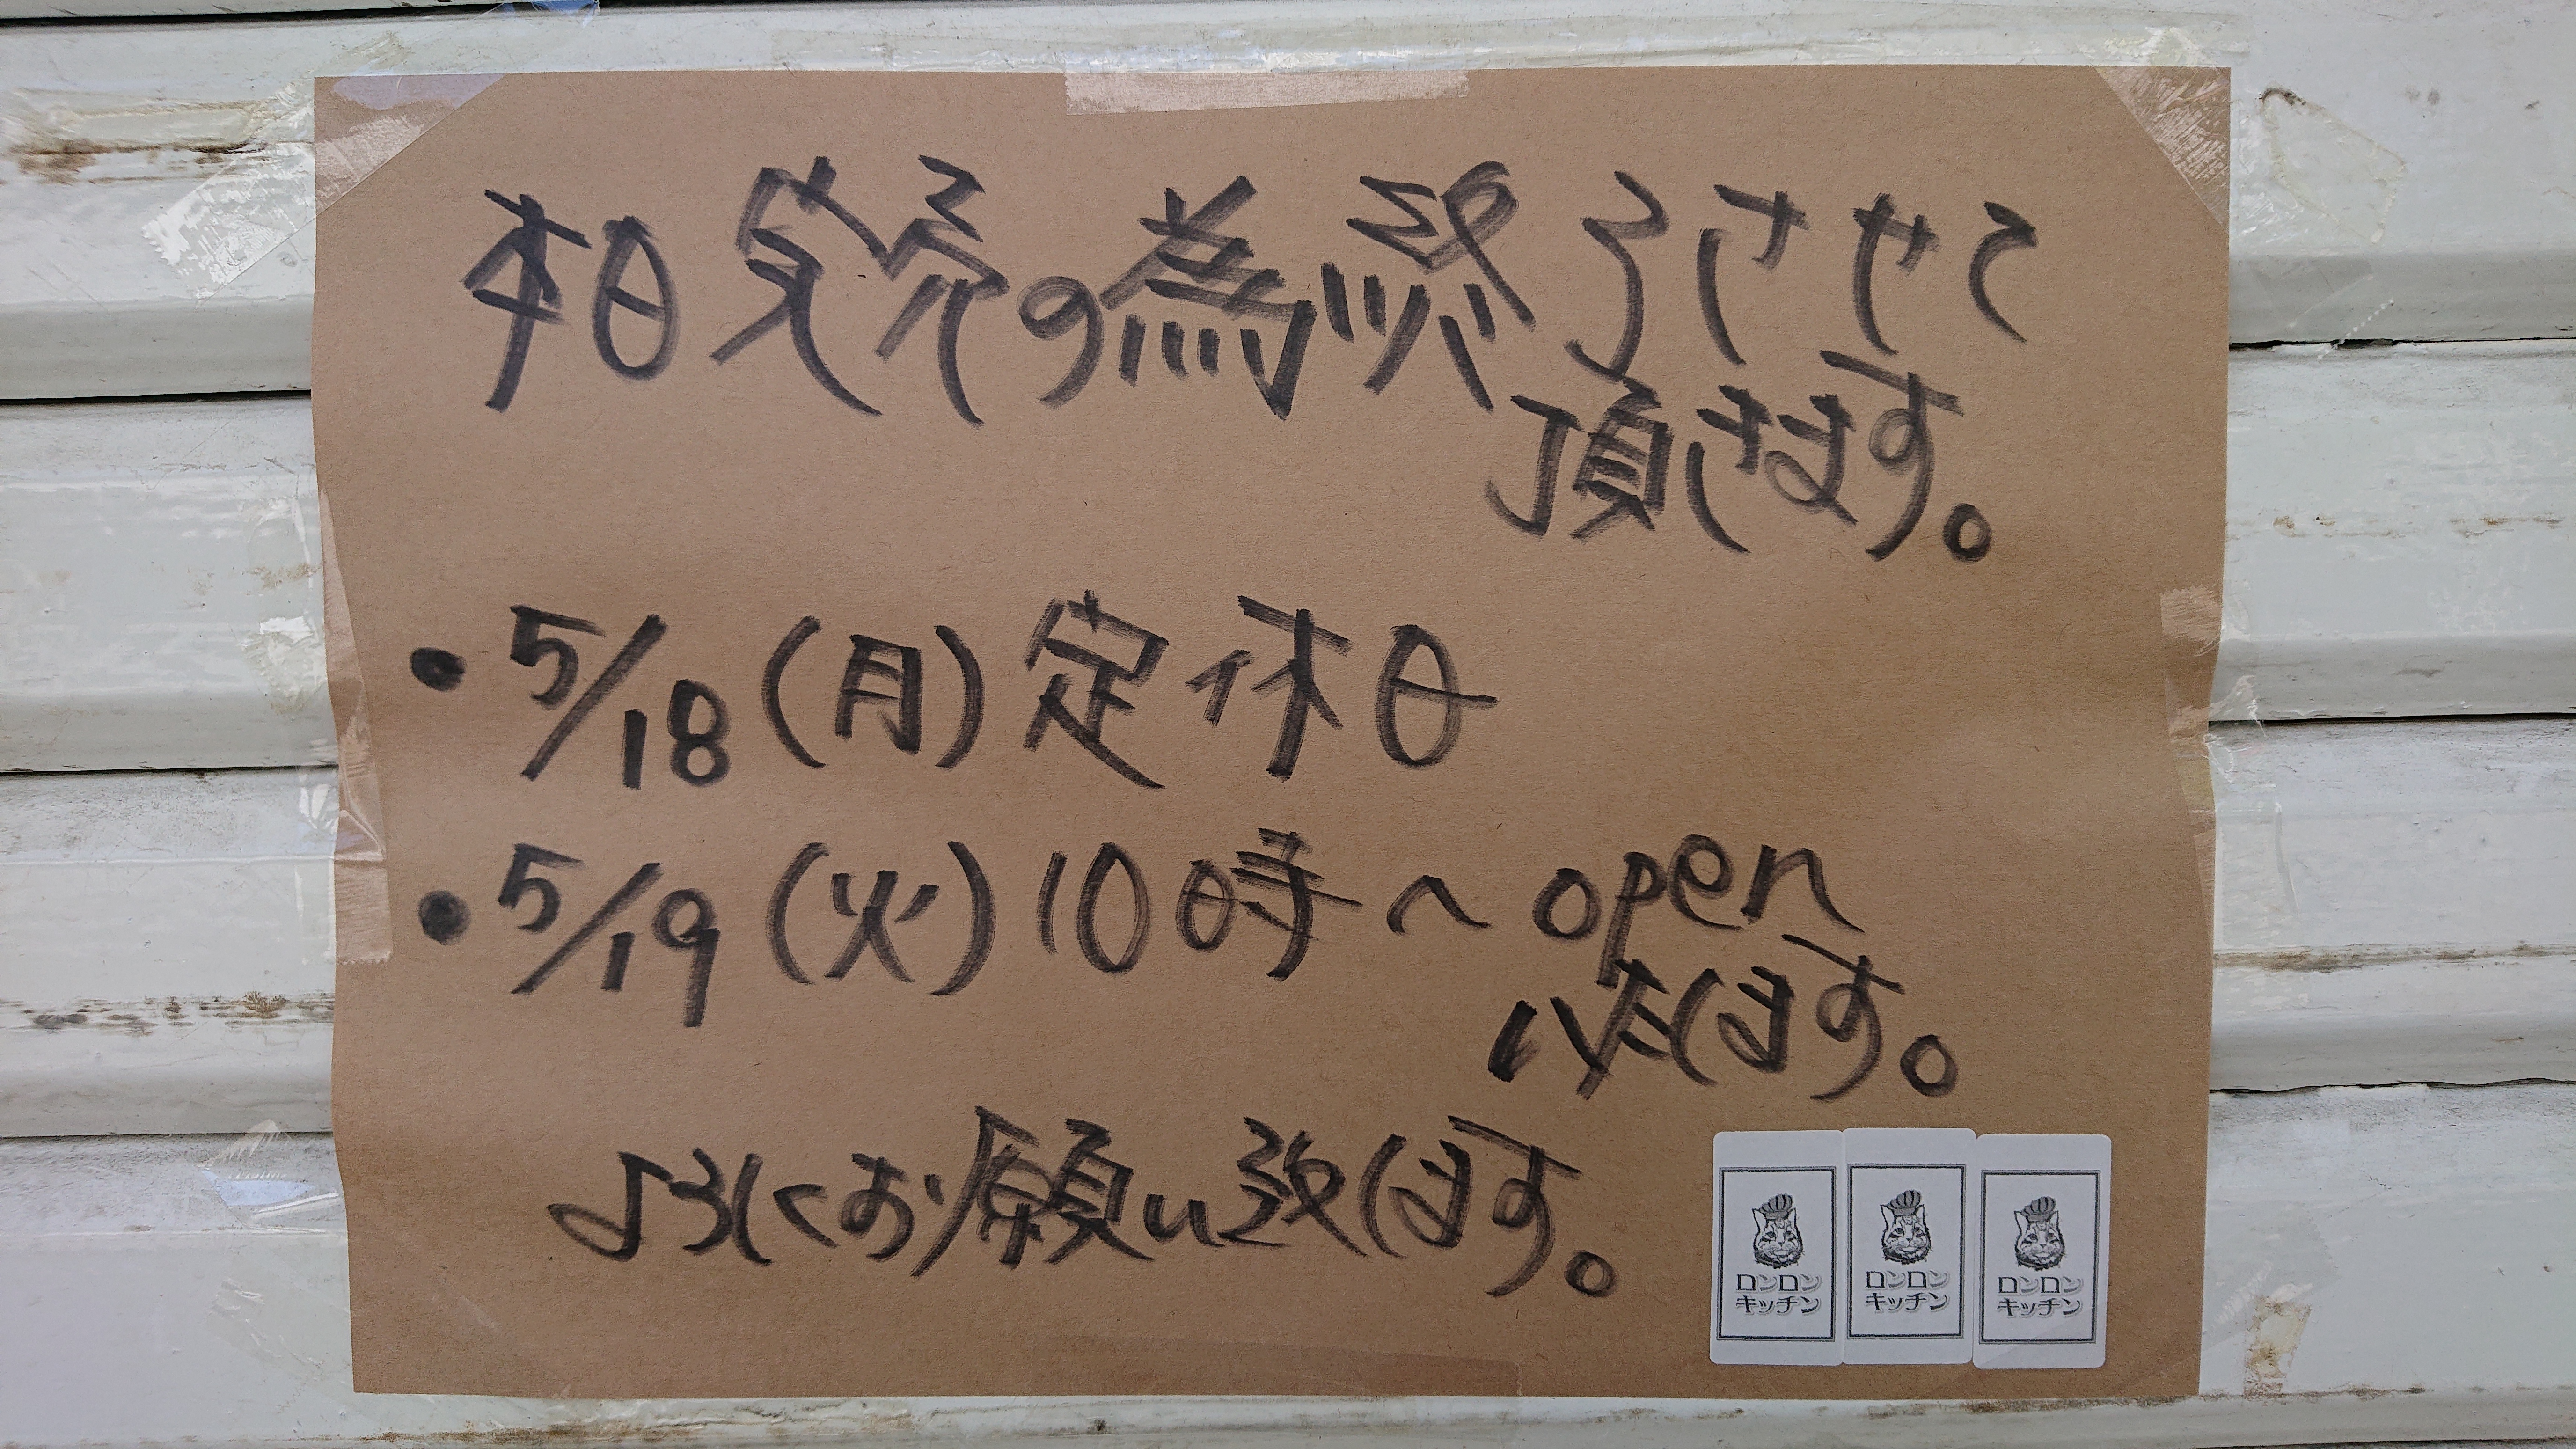 本日完売の為終了させて
頂きます。
・5/18(月)定休日
・5/19(火)10時〜open
致します。
よろしくお願い致します。
ロンロン
キッチン
ロンロン
キッチン
ロンロン
キッチン